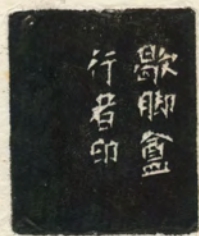 歇脚盦
行者印